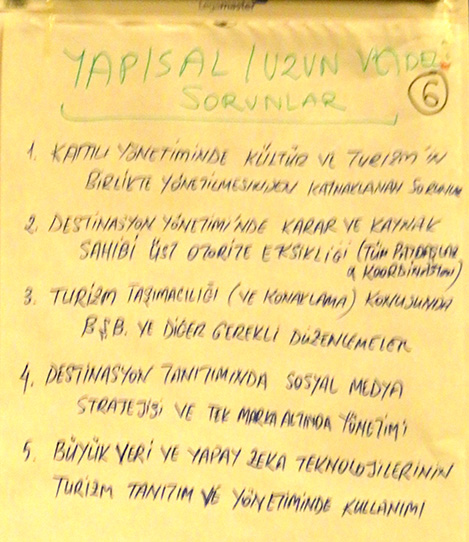 Legamaster
YAPISAL / UZUN VADELİ
6
SORUNLAR
1. KAMU YÖNETİMİNDE KÜLTÜR VE TURİZM'İN
BİRLİKTE YÖNETİLMESİNDEN KAYNAKLANAN SORUNLAR
2. DESTİNASYON YÖNETİMİ'NDE KARAR VE KAYNAK
SAHİBİ ÜST OTORİTE EKSİKLİĞİ (TÜM PAYDAŞLAR
KOORDİNASYONU)
3. TURİZM TAŞIMACILIĞI (VE KONAKLAMA) KONUSUNDA
BŞB. VE DİĞER GEREKLİ DÜZENLEMELER
4. DESTİNASYON TANITIMINDA SOSYAL MEDYA
STRATEJİSİ VE TEK MARKA ALTINDA YÖNETİM'İ
5. BÜYÜK VERİ VE YAPAY ZEKA TEKNOLOJİLERİNİN
TURİZM TANITIM VE YÖNETİMİNDE KULLANIMI